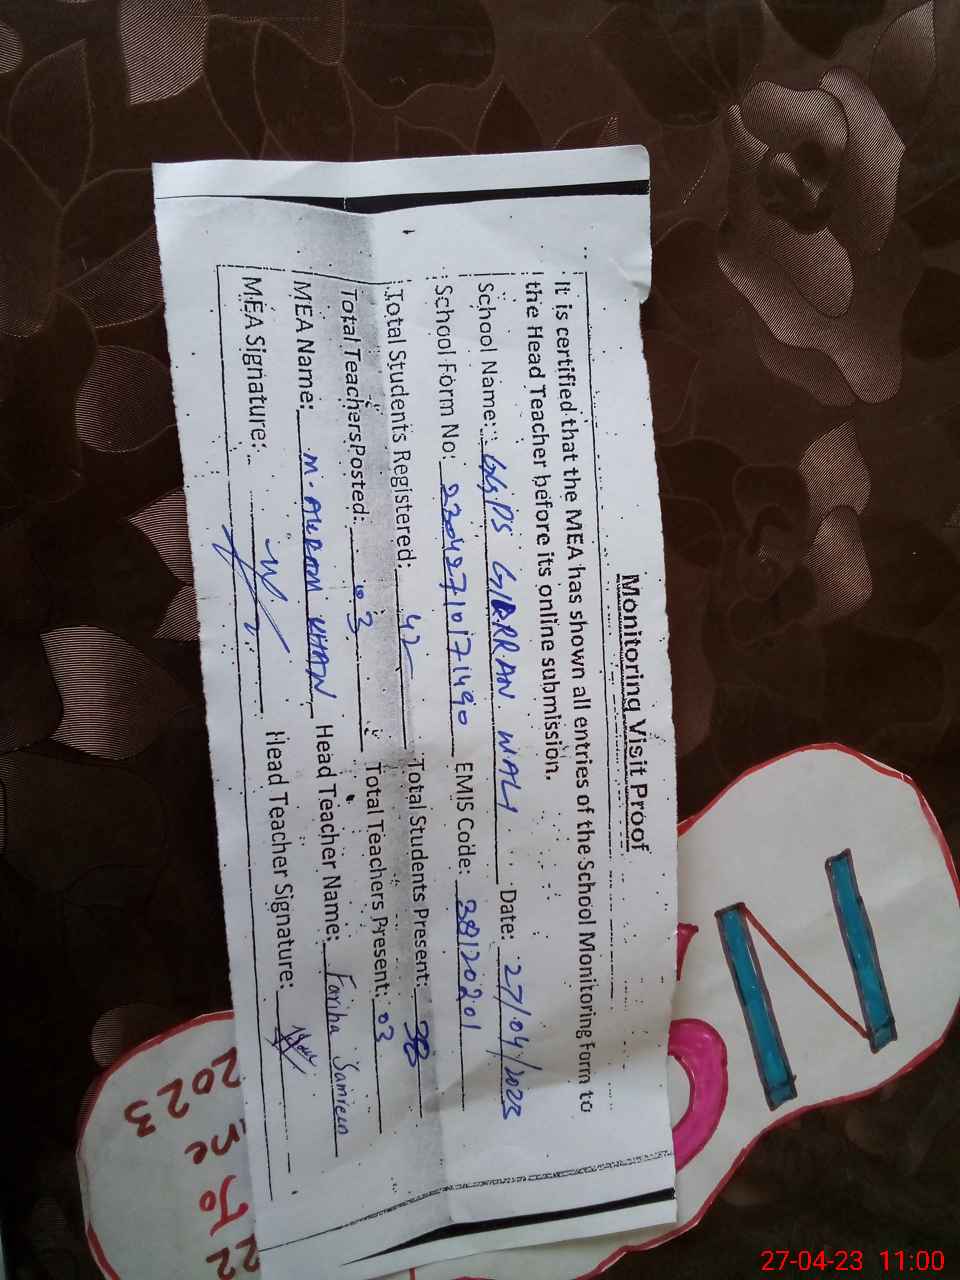 Monitoring Visit Proof
It is certified that the MEA has shown all entries of the School Monitoring Form to
the Head Teacher before its online submission.
School Name: GGPS GIRRAN WALI Date: 27/04/2023
School Form No: 23042710171490 EMIS Code: 38120201
Total Students Registered: 42 Total Students Present: 38
Total Teachers Posted: 03 Total Teachers Present: 03
MEA Name: M. AKRAM KHAN Head Teacher Name: Fariha Samreen
MEA Signature: Head Teacher Signature:
N
22
To
ne
2023
27-04-23 11:00